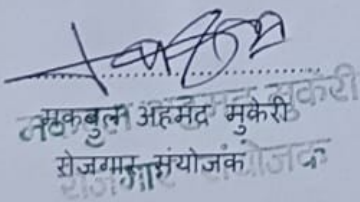 मकबुल अहमद मुकेरी
रोजगार संयोजक